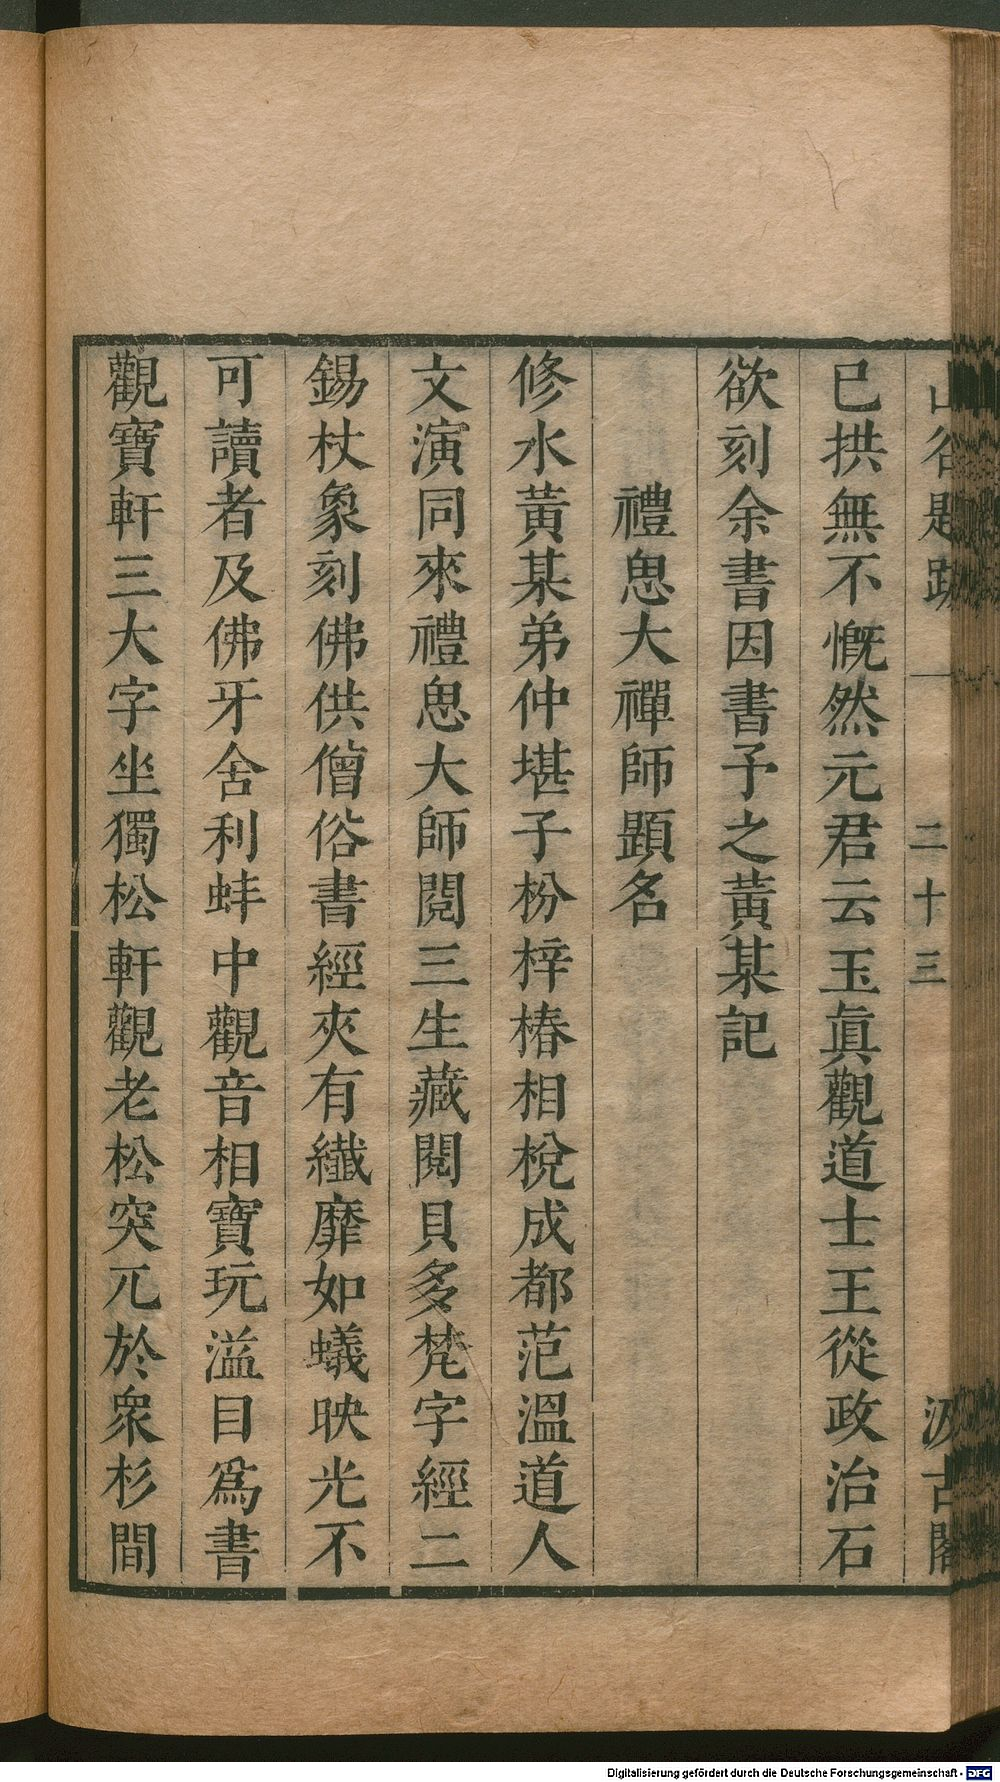 山谷題跋 一 二十三 汲古閣
已拱無不慨然元君云玉眞觀道士王從政治石
欲刻余書因書予之黃某記
禮思大禪師題名
修水黃某弟仲堪子枌梓椿相梲成都范溫道人
文演同來禮思大師閱三生藏閱貝多梵字經二
錫杖象刻佛供僧俗書經夾有纖靡如蟻映光不
可讀者及佛牙舍利蚌中觀音相寶玩溢目爲書
觀寶軒三大字坐獨松軒觀老松突兀於衆杉間
Digitalisierung gefördert durch die Deutsche Forschungsgemeinschaft - DFG